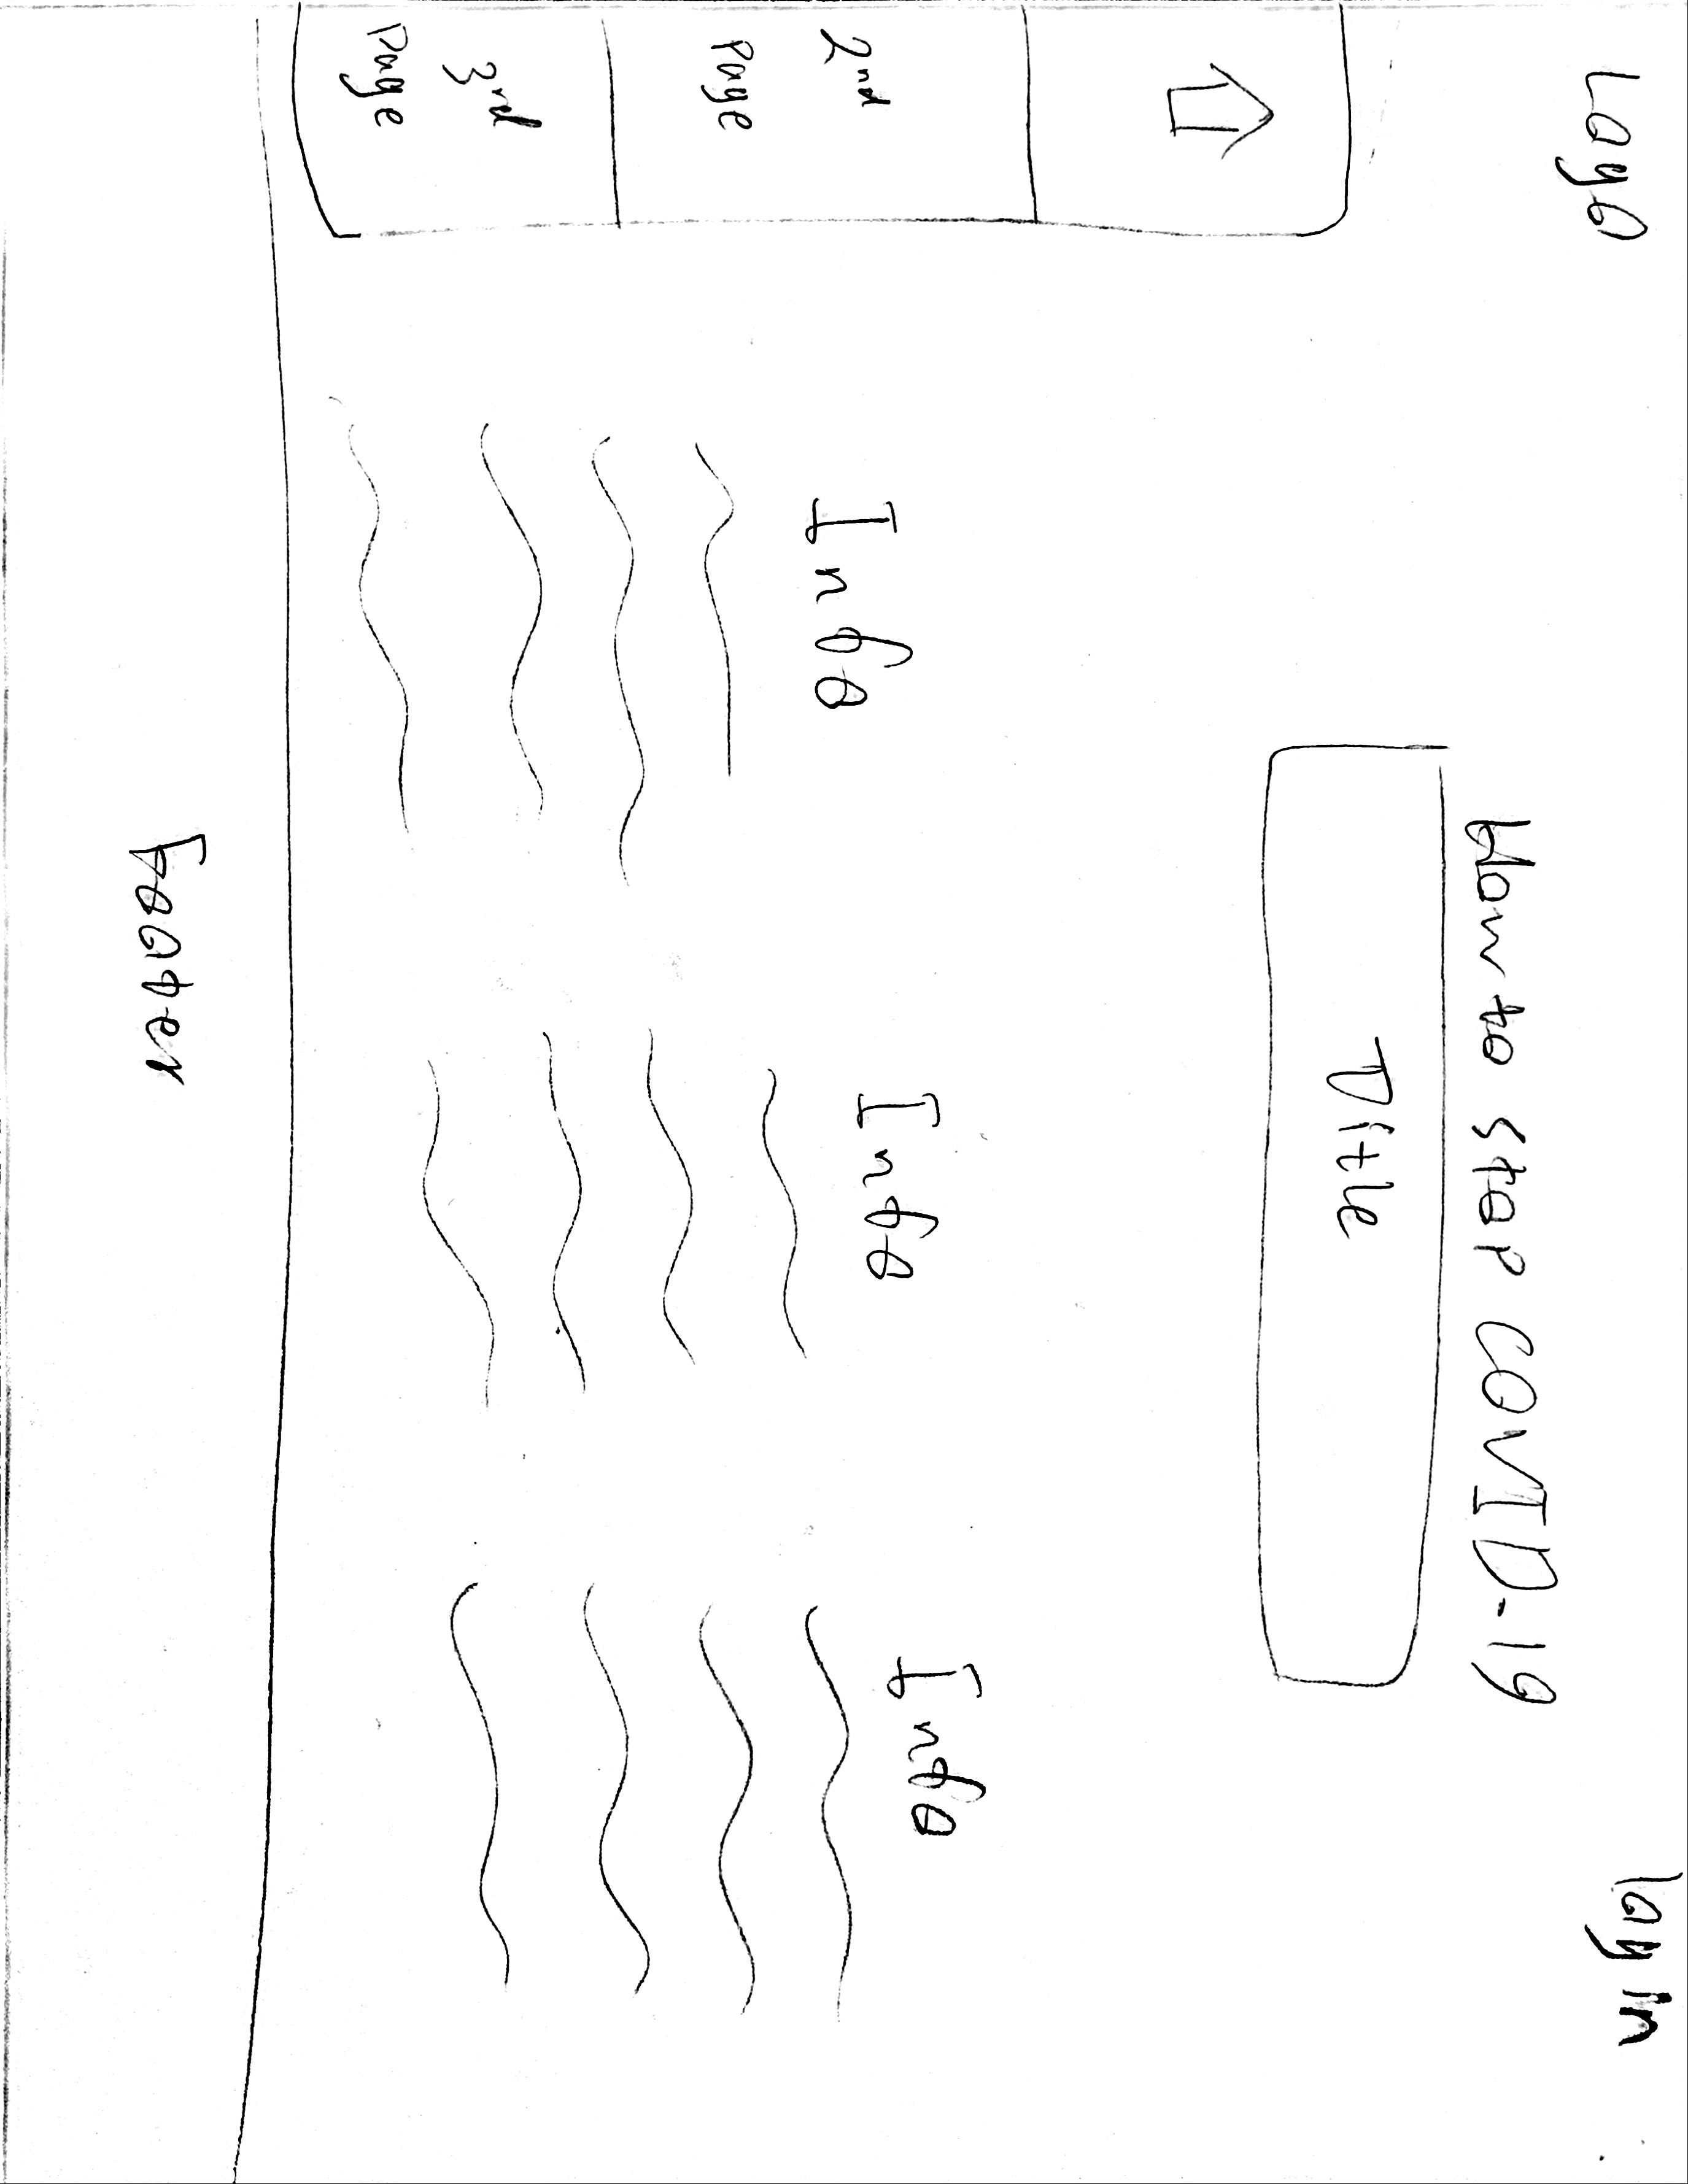 Logo
login
How to stop COVID-19
Title
2nd
page
3rd
page
Info
Info
Info
Footer